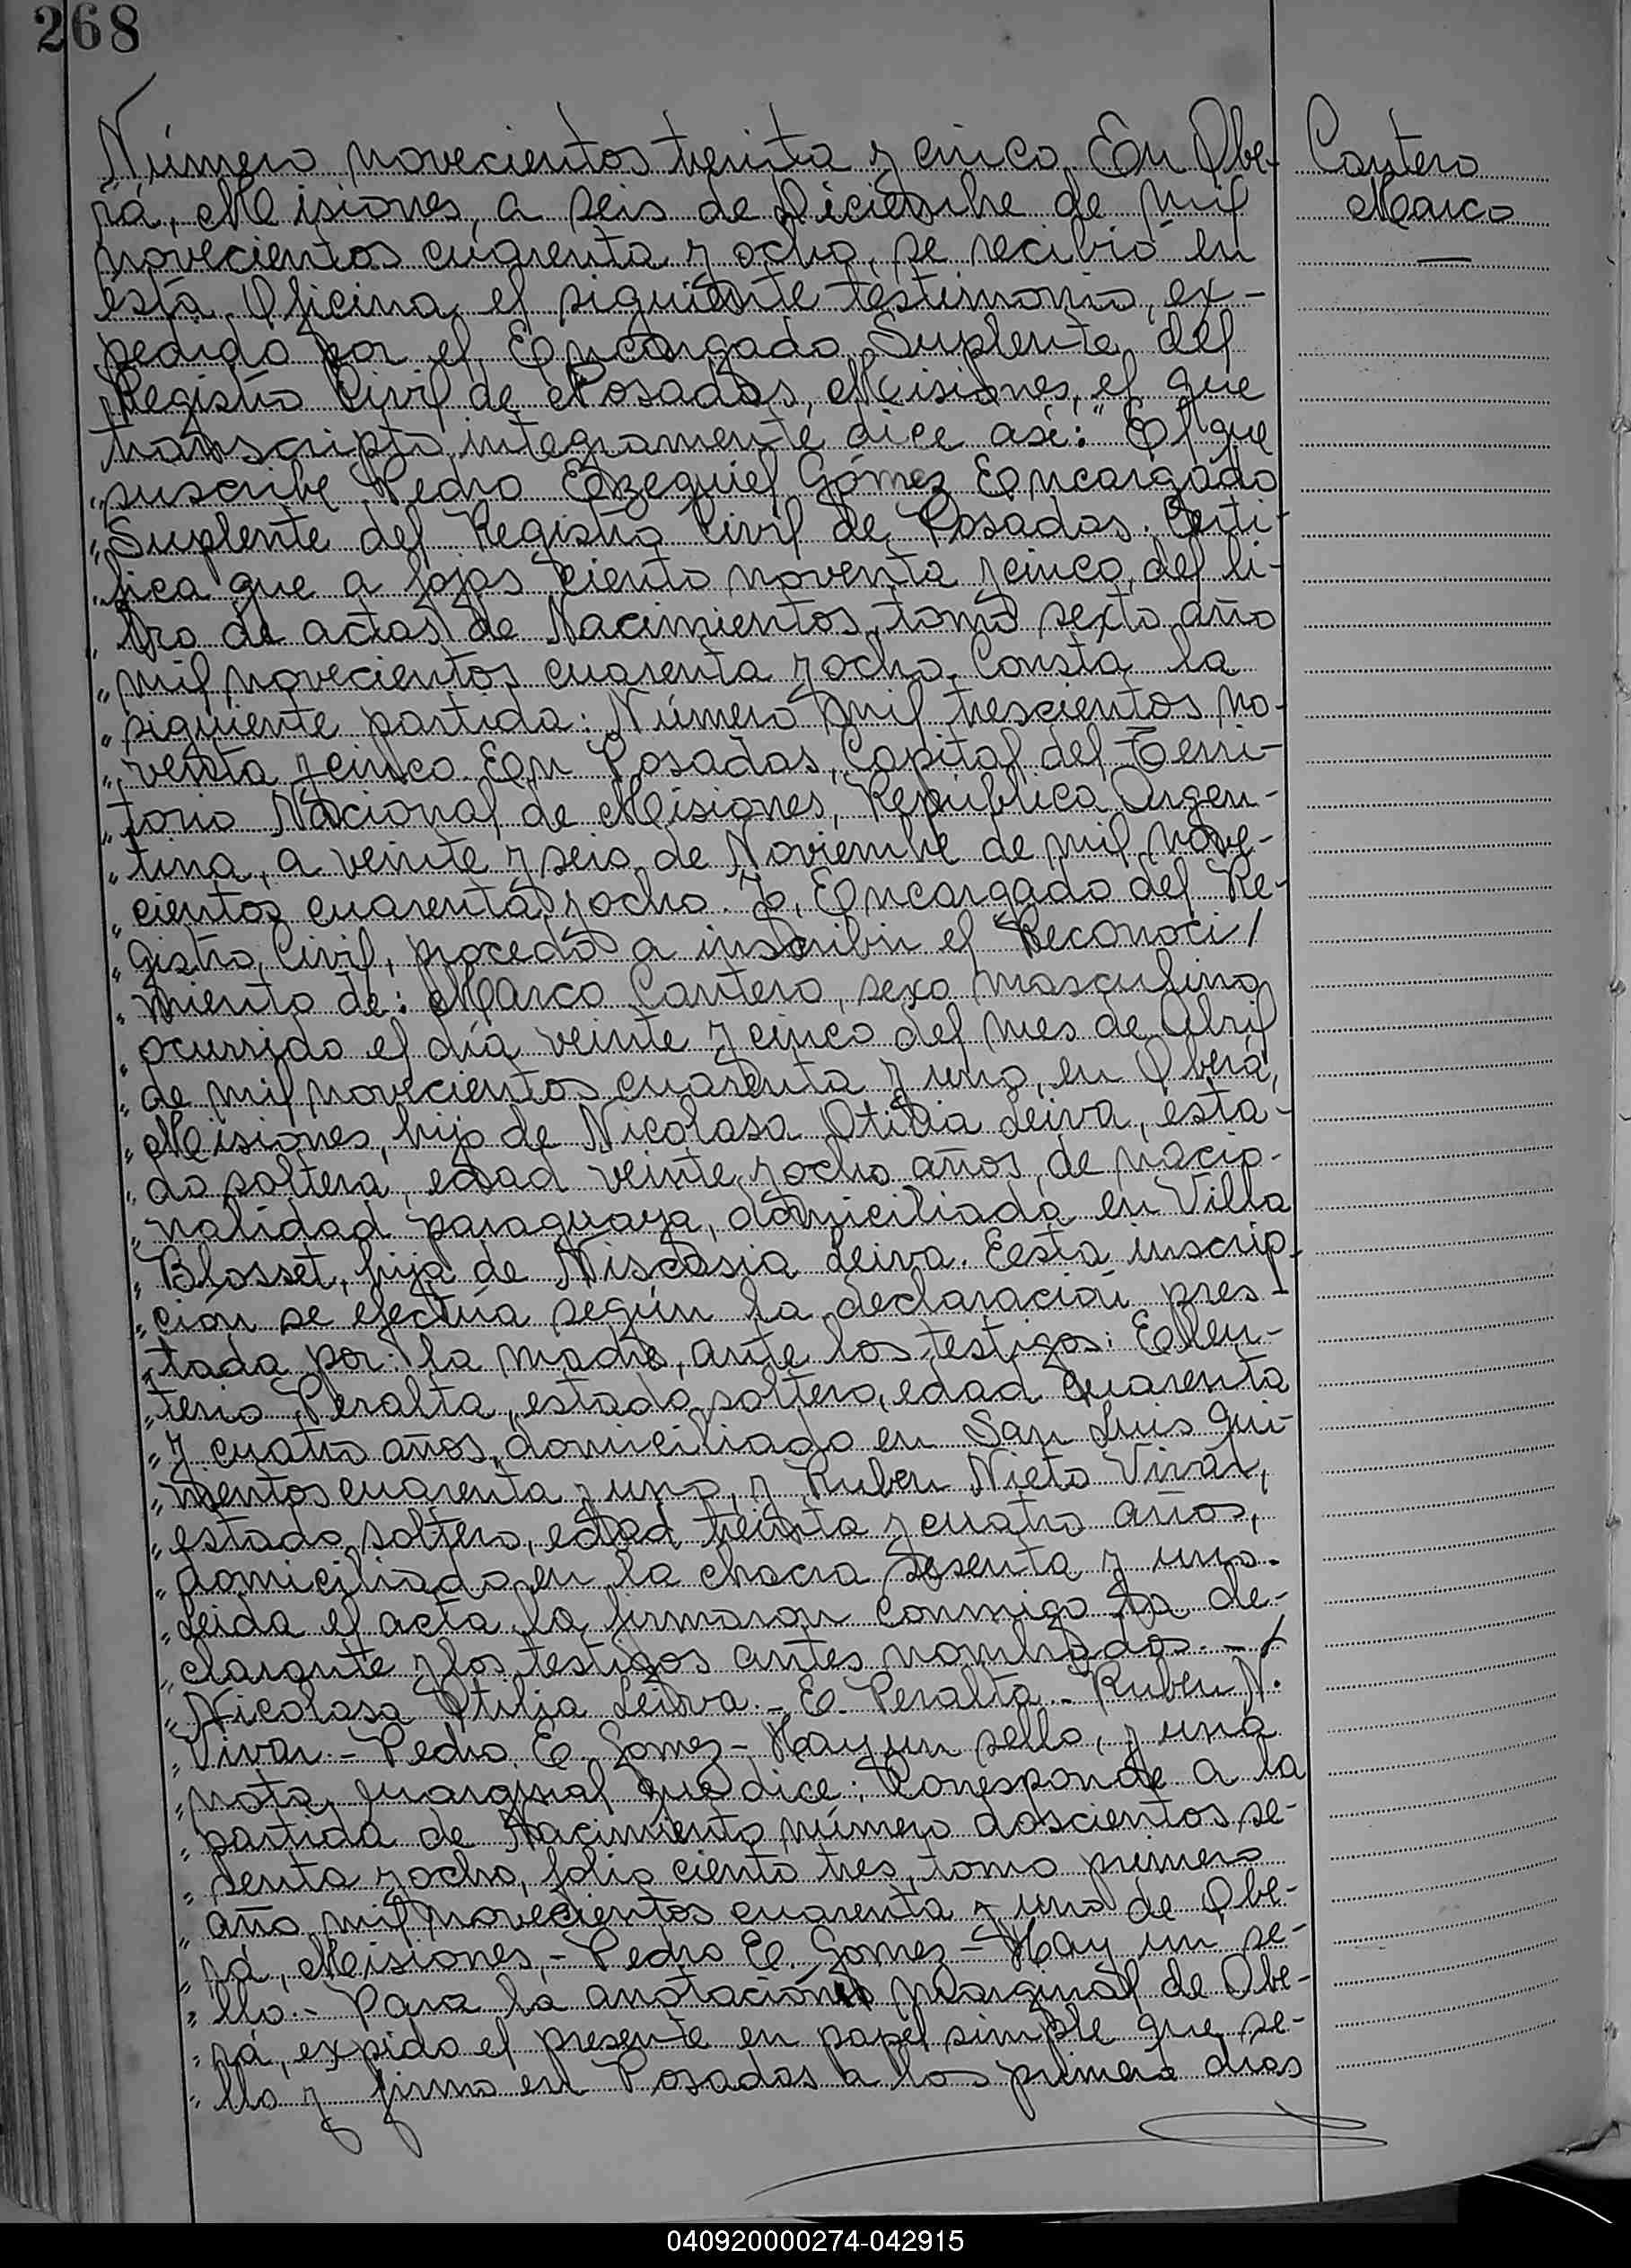 268
Número novecientos treinta y cinco. En Obe-
rá, Misiones, a seis de Diciembre de mil
novecientos cuarenta y ocho, se recibió en
esta Oficina el siguiente testimonio, ex-
pedido por el Encargado Suplente del
Registro Civil de Posadas, Misiones, el que
transcripto integramente dice asi: "El que
"suscribe Pedro Ezequiel Gómez Encargado
"Suplente del Registro Civil de Posadas. Certi-
"fica que a fojas ciento noventa y cinco, del li-
"bro de actas de Nacimientos, tomo sexto año
"mil novecientos cuarenta y ocho. Consta la
"siguiente partida: Número mil trescientos no-
"venta y cinco. En Posadas, Capital del Terri-
"torio Nacional de Misiones, República Argen-
"tina, a veinte y seis de Noviembre de mil nove-
"cientos cuarenta y ocho. Yo, Encargado del Re-
"gistro Civil, procedo a inscribir el Reconoci/
"miento de: Marco Cantero, sexo masculino
"ocurrido el día veinte y cinco del mes de Abril
"de mil novecientos cuarenta y uno, en Oberá,
"Misiones, hijo de Nicolasa Otilia Leiva, esta-
"do soltera, edad veinte y ocho años, de nacio-
"nalidad paraguaya, domiciliada en Villa
"Blosset, hija de Niscasia Leiva. Esta inscrip-
"ción se efectúa según la declaración pres-
"tada por: la madre, ante los testigos: Eleu-
"terio Peralta, estado soltero, edad cuarenta
"y cuatro años, domiciliado en San Luis qui-
"nientos cuarenta y uno, y Ruben Nieto Vivar,
"estado soltero, edad treinta y cuatro años,
"domiciliado en la chacra sesenta y uno.
"Leida el acta la firmaron conmigo la de-
"clarante y los testigos antes nombrados. -/
"Nicolasa Otilia Leiva.- E. Peralta.- Ruben N.
"Vivar.- Pedro E. Gomez- Hay un sello, y una
"nota marginal que dice: Corresponde a la
"partida de Nacimiento número doscientos se-
"senta y ocho, folio ciento tres, tomo primero
"año mil novecientos cuarenta y uno de Obe-
"rá, Misiones,- Pedro E. Gomez- Hay un se-
"llo.- Para la anotación marginal de Obe-
"rá, expido el presente en papel simple que se-
"llo y firmo en Posadas a los primero dias
Cantero
Marco
040920000274-042915